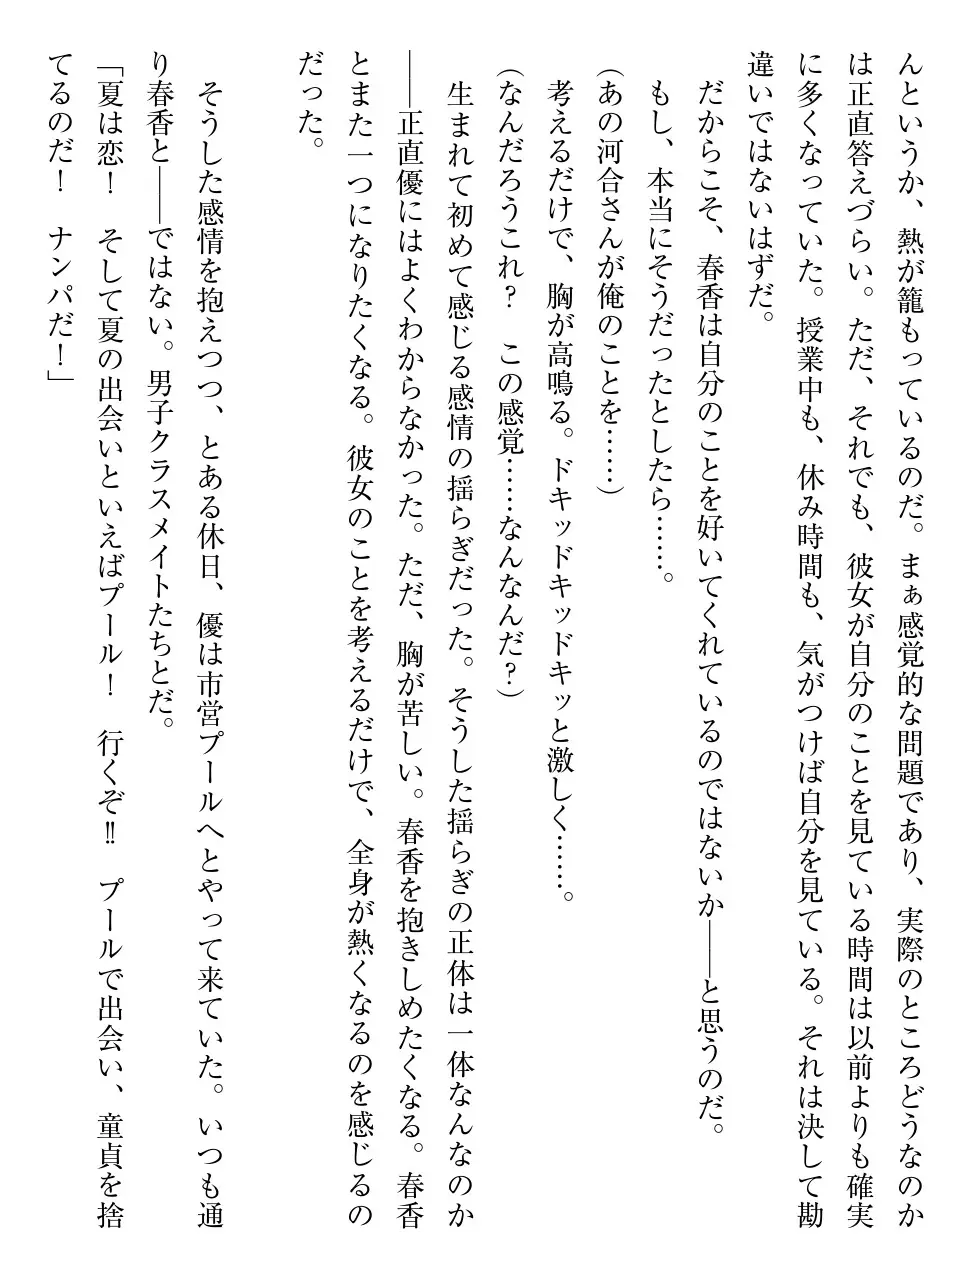 んというか、熱が籠もっているのだ。まぁ感覚的な問題であり、実際のところどうなのか
は正直答えづらい。ただ、それでも、彼女が自分のことを見ている時間は以前よりも確実
に多くなっていた。授業中も、休み時間も、気がつけば自分を見ている。それは決して勘
違いではないはずだ。
　だからこそ、春香は自分のことを好いてくれているのではないか――と思うのだ。
　もし、本当にそうだったとしたら……。
（あの河合さんが俺のことを……）
　考えるだけで、胸が高鳴る。ドキッドキッドキッと激しく……。
（なんだろうこれ？　この感覚……なんなんだ？）
　生まれて初めて感じる感情の揺らぎだった。そうした揺らぎの正体は一体なんなのか
――正直優にはよくわからなかった。ただ、胸が苦しい。春香を抱きしめたくなる。春香
とまた一つになりたくなる。彼女のことを考えるだけで、全身が熱くなるのを感じるの
だった。
　そうした感情を抱えつつ、とある休日、優は市営プールへとやって来ていた。いつも通
り春香と――ではない。男子クラスメイトたちとだ。
「夏は恋！　そして夏の出会いといえばプール！　行くぞ‼　プールで出会い、童貞を捨
てるのだ！　ナンパだ！」